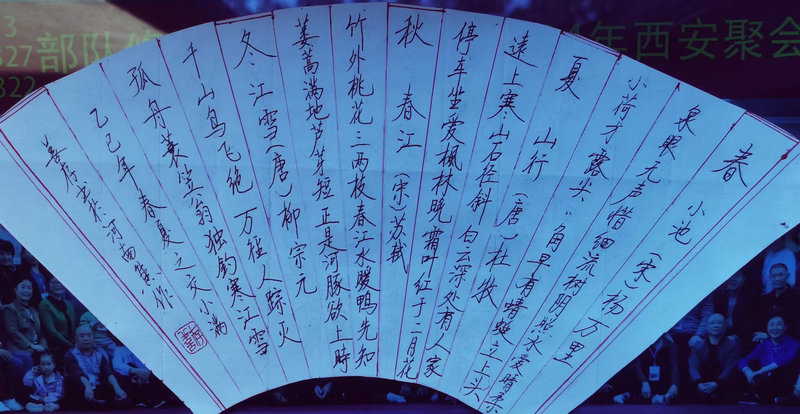 3
827
822
部队
年西安聚会
春 小池(宋)杨万里
泉眼无声惜细流树阴照水爱晴柔
小荷才露尖〃角早有蜻蜓立上头
夏 山行(唐)杜牧
遠上寒山石径斜 白云深处有人家
停车坐爱楓林晚霜叶红于二月花
秋 春江(宋)苏轼
竹外桃花三两枝春江水暖鸭先知
蒌蒿满地芦芽短正是河豚欲上時
冬江雪(唐)柳宗元
千山鸟飞绝 万径人踪灭
孤舟蓑笠翁独钓寒江雪
乙巳年春夏之交小满
书於河南焦作